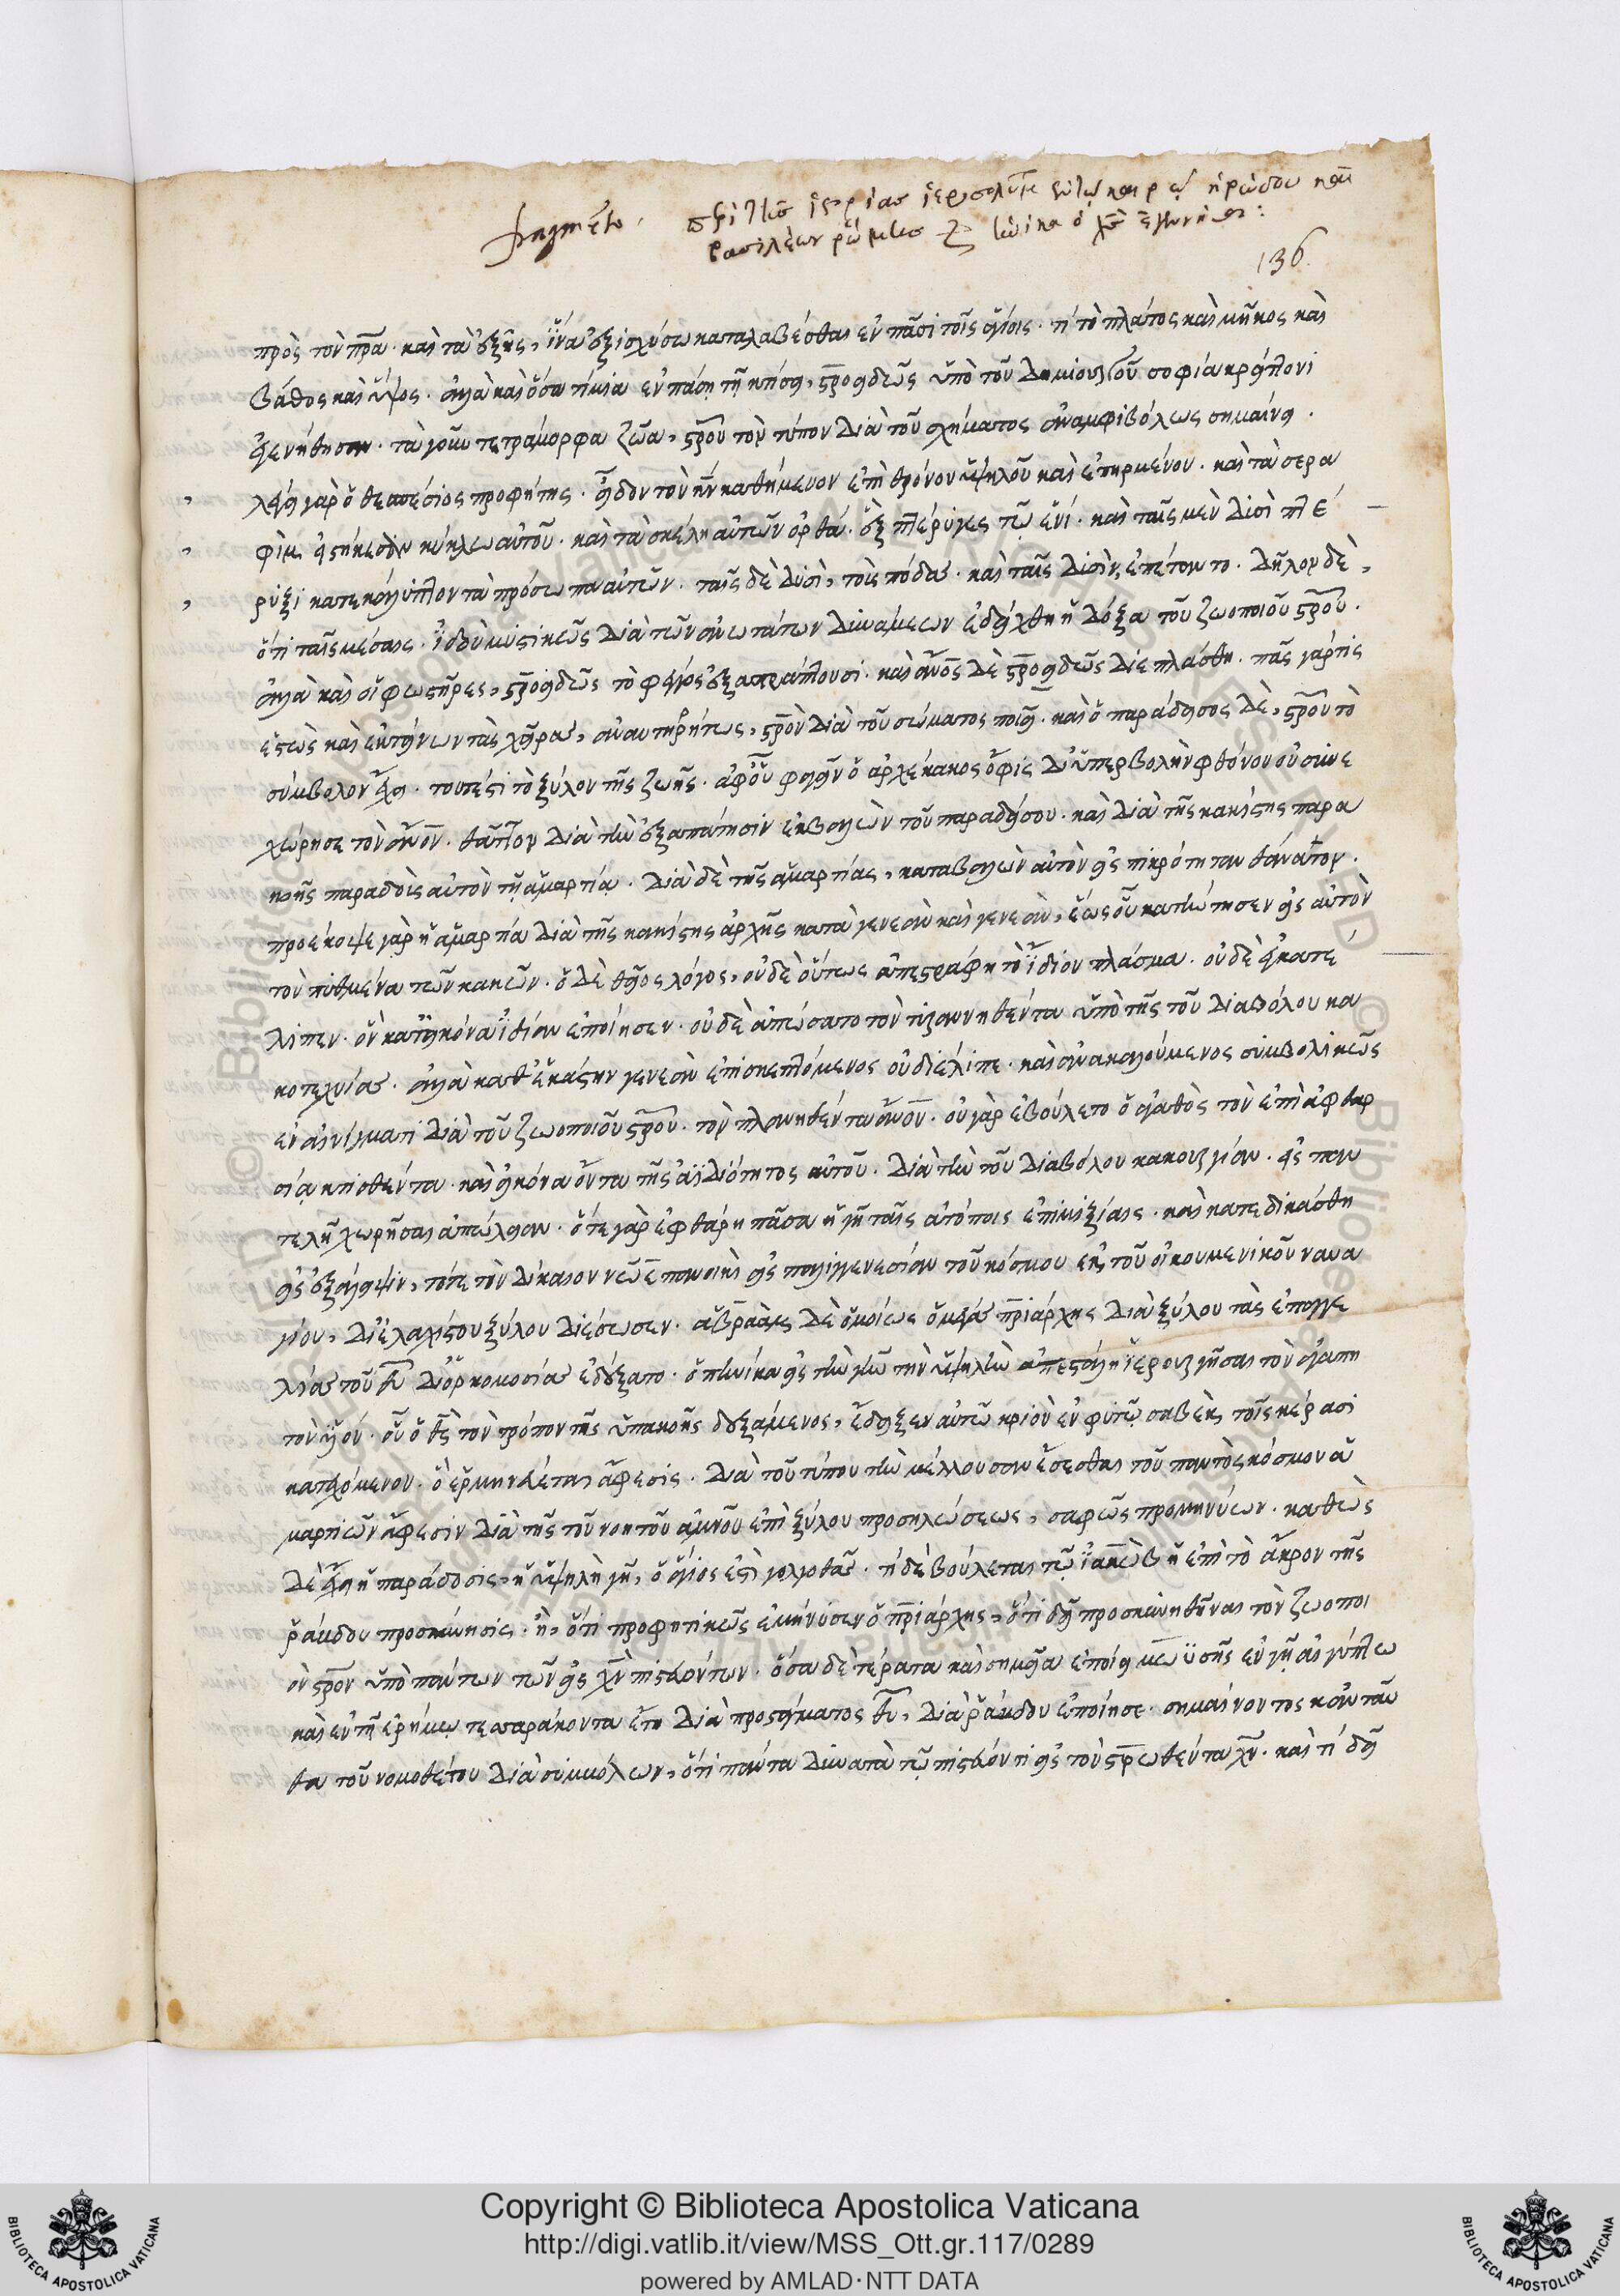 fragmẽto
136
πρὸς τὸν πρ̅α· καὶ τὰ ἑξῆς, ἵνα ἐξισχύσω καταλαβέσθαι ἐν πᾶσι τοῖς ἁγίοις· τί τὸ πλάτος καὶ μῆκος καὶ
βάθος καὶ ὕψος· ἀλλὰ καὶ ὅσα τίμια ἐν πάσῃ τῇ κτίσει, στ̅ροειδῶς ὑπὸ τοῦ δημιουργοῦ σοφία κρείττονι
ἐγενήθησαν· τὰ γοῦν τετράμορφα ζῶα, στ̅ρου τὸν τύπον διὰ τοῦ σχήματος ἀναμφιβόλως σημαίνει·
λέγει γὰρ ὁ θεσπέσιος προφήτης· εἶδον τὸν κ̅ν καθήμενον ἐπὶ θρόνου ὑψηλοῦ καὶ ἐπηρμένου· καὶ τὰ σερα
φὶμ εἱστήκεσαν κύκλω αὐτοῦ· καὶ τὰ σκέλη αὐτῶν ὀρθά· ἓξ πτέρυγες τῷ ἑνί· καὶ ταῖς μὲν δυσὶ πτέ
ρυξι κατεκάλυπτον τὰ πρόσωπα αὐτῶν· ταῖς δὲ δυσὶ, τοὺς πόδας· καὶ ταῖς δυσὶν, ἐπέτοντο· δῆλον δὲ,
ὅτι ταῖς μέσαις· ἰδοὺ μυστικῶς διὰ τῶν ἀνωτάτων δυνάμεων ἐδείχθη ἡ δόξα τοῦ ζωοποιοῦ στ̅ρου·
ἀλλὰ καὶ οἱ φωστῆρες, στ̅ροειδῶς τὸ φέγγος ἐξαπράπτουσι· καὶ ἀν̅ο̅ς δὲ στ̅ροειδῶς διεπλάσθη· πᾶς γάρ τις
ἑστὼς καὶ ἐκτείνων τὰς χεῖρας, ἀναντιρρήτως, στ̅ρὸν διὰ τοῦ σώματος ποιεῖ· καὶ ὁ παράδεισος δὲ, στ̅ρου τὸ
σύμβολον εἶχε· τουτέστι τὸ ξύλον τῆς ζωῆς· ἀφ' οὗ φαγεῖν ὁ ἀρχέκακος ὄφις δι' ὑπερβολὴν φθόνου οὐ συνε
χώρησε τὸν ἀν̅ο̅ν· θᾶττον διὰ τὴν ἐξαπάτησιν ἐκβαλὼν τοῦ παραδείσου· καὶ διὰ τῆς κακίστης παρα
κοῆς παραδοὺς αὐτὸν τῇ ἁμαρτίᾳ· διὰ δὲ τῆς ἁμαρτίας, καταβαλὼν αὐτὸν εἰς πικρότητα θάνατον·
προέκοψε γὰρ ἡ ἁμαρτία διὰ τῆς κακίστης ἀρχῆς κατὰ γενεὰν καὶ γενεὰν, ἕως οὗ κατήντησεν εἰς αὐτὸν
τὸν πυθμένα τῶν κακῶν· ὁ δὲ θεῖος λόγος, οὐδὲ οὕτως ἀπεστράφη τὸ ἴδιον πλάσμα· οὐδὲ ἐγκατέ
λιπεν· ὃν κατ' εἰκόνα ἰδίαν ἐποίησεν· οὐδὲ ἀπώσατο τὸν πλανηθέντα ὑπὸ τῆς τοῦ διαβόλου κα
κοτεχνίας· ἀλλὰ καθ' ἑκάστην γενεὰν ἐπισκεπτόμενος οὐ διέλιπε· καὶ ἀνακαλούμενος συμβολικῶς
ἐν αἰνίγματι διὰ τοῦ ζωοποιοῦ στ̅ρου· τὸν πλανηθέντα ἀν̅ο̅ν· οὐ γὰρ ἐβούλετο ὁ ἀγαθὸς τὸν ἐπὶ ἀφθαρ
σίᾳ κτισθέντα· καὶ εἰκόνα ὄντα τῆς ἀϊδιότητος αὐτοῦ· διὰ τὴν τοῦ διαβόλου κακουργίαν· εἰς παν
τελῆ χωρῆσαι ἀπώλειαν· ὅτε γὰρ ἐφθάρη πᾶσα ἡ γῆ ταῖς ἀτόποις ἐπιμιξίαις· καὶ κατεδικάσθη
εἰς ἐξάλειψιν, τότε τὸν δίκαιον νῶε πανοικὶ εἰς παλιγγενεσίαν τοῦ κόσμου ἐκ τοῦ οἰκουμενικοῦ ναυα
γίου, δι' ἐλαχίστου ξύλου διέσωσεν· ἀβραὰμ δὲ ὁμοίως ὁ μέγας π̅ριάρχης διὰ ξύλου τὰς ἐπαγγε
λίας τοῦ θ̅υ δι' ὁρκωμοσίας ἐδέξατο· ὁπηνίκα εἰς τὴν γῆν τὴν ὑψηλὴν ἀπεστάλη ἱερουργῆσαι τὸν ἀγαπη
τὸν υἱόν· οὗ ὁ θ̅ς τὸν τρόπον τῆς ὑπακοῆς δεξάμενος, ἔδειξεν αὐτῷ κριὸν ἐν φυτῷ σαβὲκ, τοῖς κέρασι
κατεχόμενον· ὃ ἑρμηνεύεται ἄφεσις· διὰ τοῦ τύπου τὴν μέλλουσαν ἔσεσθαι τοῦ παντὸς κόσμου ἁ
μαρτιῶν ἄφεσιν διὰ τῆς τοῦ νοητοῦ ἀμνοῦ ἐπὶ ξύλου προσηλώσεως, σαφῶς προμηνύων· καθὼς
δὲ ἔχει ἡ παράδοσις, ἡ ὑψηλὴ γῆ, ὁ ἅγιός ἐστι γολγοθᾶς· τί δὲ βούλεται τῷ ἰακὼβ ἡ ἐπὶ τὸ ἄκρον τῆς
ῥάβδου προσκύνησις· ἢ, ὅτι προφητικῶς ἐμήνυσεν ὁ π̅ριάρχης, ὅτι δεῖ προσκυνηθῆναι τὸν ζωοποι
ὸν στ̅ρον ὑπὸ πάντων τῶν εἰς χ̅ν πιστευόντων· ὅσα δὲ τέρατα καὶ σημεῖα ἐποίει μωϋσῆς ἐν γῇ αἰγύπτω
καὶ ἐν τῇ ἐρήμῳ τεσσαράκοντα ἔτη διὰ προστάγματος θ̅υ, διὰ ῥάβδου ἐποίησε· σημαίνοντος κἀνταῦ
θα τοῦ νομοθέτου διὰ συμβόλων, ὅτι πάντα δυνατὰ τῷ πιστεύοντι εἰς τὸν στ̅ρωθέντα χ̅ν· καὶ τί δεῖ
Copyright © Biblioteca Apostolica Vaticana
http://digi.vatlib.it/view/MSS_Ott.gr.117/0289
powered by AMLAD·NTT DATA